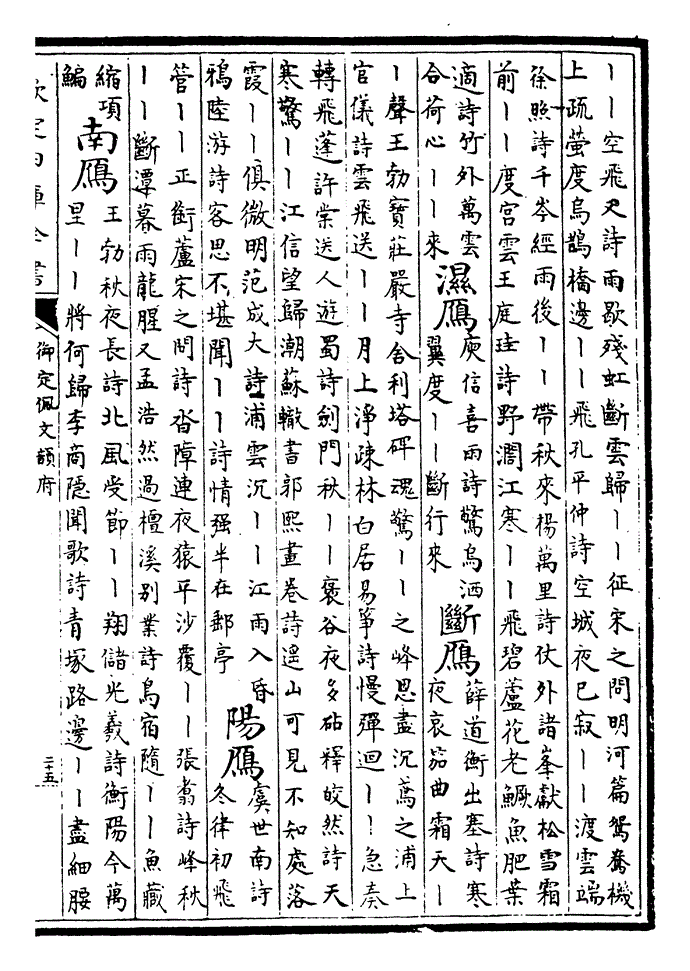 丨丨空飛又詩雨歇殘虹斷雲歸丨丨征宋之問明河篇鴛鴦機
上疏螢度烏鵲橋邊丨丨飛孔平仲詩空城夜已寂丨丨渡雲端
徐照詩千岑經雨後丨丨帶秋來楊萬里詩仗外諸峯獻松雪霜
前丨丨度宮雲王庭珪詩野濶江寒丨丨飛碧蘆花老鱖魚肥葉
適詩竹外萬雲合荷心丨丨來
濕鴈
庾信喜雨詩驚烏洒翼度丨丨斷行來
斷鴈
薛道衡出塞詩寒夜哀笳曲霜天丨
丨聲王勃寶莊嚴寺舍利塔碑魂驚丨丨之峰思盡沉鳶之浦上
官儀詩雲飛送丨丨月上淨疎林白居易箏詩慢彈迴丨丨急奏
轉飛蓬許棠送人遊蜀詩劍門秋丨丨褒谷夜多砧釋皎然詩天
寒驚丨丨江信望歸潮蘇轍書郭熙畫卷詩遥山可見不知處落
霞丨丨俱微明范成大詩浦雲沉丨丨江雨入昏
鴉陸游詩客思不堪聞丨丨詩情强半在郵亭
陽鴈
虞世南詩冬律初飛
管丨丨正銜蘆宋之問詩沓障連夜猿平沙覆丨丨張翥詩峰秋
丨丨斷潭暮雨龍腥又孟浩然過檀溪别業詩鳥宿隨丨丨魚藏
縮項鯿
南鴈
王勃秋夜長詩北風受節丨丨翔儲光羲詩衡陽今萬
里丨丨將何歸李商隱聞歌詩青塚路邊丨丨盡細腰
欽定四庫全書
御定佩文韻府
二十五